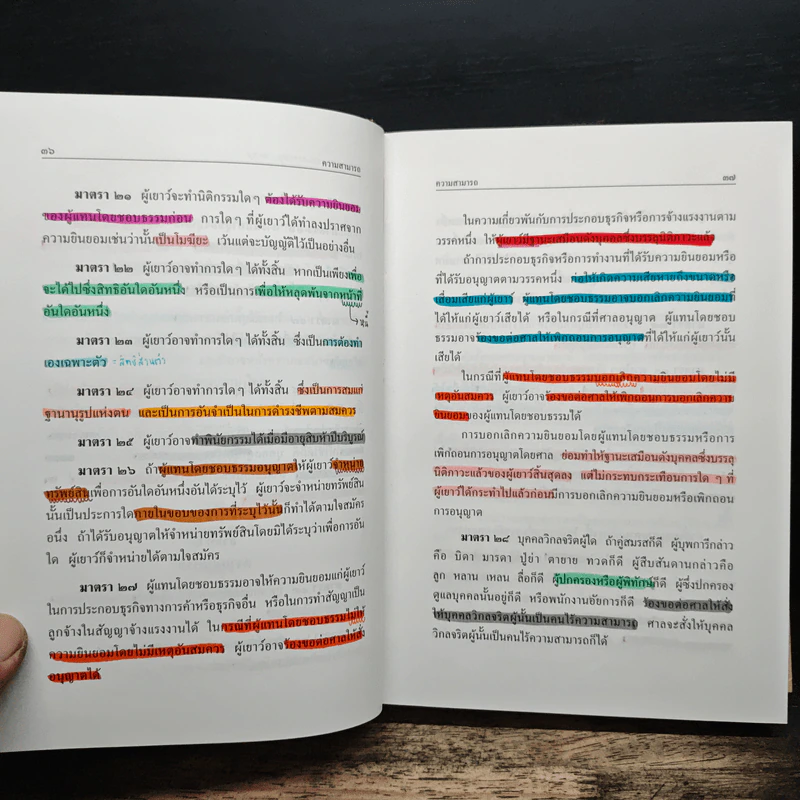 ๓๖
ความสามารถ
มาตรา ๒๑ ผู้เยาว์จะทำนิติกรรมใดๆ ต้องได้รับความยินยอม
ของผู้แทนโดยชอบธรรมก่อน การใดๆ ที่ผู้เยาว์ได้ทำลงปราศจาก
ความยินยอมเช่นว่านั้นเป็นโมฆียะ เว้นแต่จะบัญญัติไว้เป็นอย่างอื่น
มาตรา ๒๒ ผู้เยาว์อาจทำการใดๆ ได้ทั้งสิ้น หากเป็นเพียงเพื่อ
จะได้ไปซึ่งสิทธิอันใดอันหนึ่ง หรือเป็นการเพื่อให้หลุดพ้นจากหน้าที่
อันใดอันหนึ่ง
หนี้
มาตรา ๒๓ ผู้เยาว์อาจทำการใดๆ ได้ทั้งสิ้น ซึ่งเป็นการต้องทำ
เองเฉพาะตัว - สิทธิส่วนตัว
มาตรา ๒๔ ผู้เยาว์อาจทำการใดๆ ได้ทั้งสิ้น ซึ่งเป็นการสมแก่
ฐานานุรูปแห่งตน และเป็นการอันจำเป็นในการดำรงชีพตามสมควร
มาตรา ๒๕ ผู้เยาว์อาจทำพินัยกรรมได้เมื่อมีอายุสิบห้าปีบริบูรณ์
มาตรา ๒๖ ถ้าผู้แทนโดยชอบธรรมอนุญาตให้ผู้เยาว์จำหน่าย
ทรัพย์สินเพื่อการอันใดอันหนึ่งอันได้ระบุไว้ ผู้เยาว์จะจำหน่ายทรัพย์สิน
นั้นเป็นประการใดภายในขอบของการที่ระบุไว้นั้นก็ทำได้ตามใจสมัคร
อนึ่ง ถ้าได้รับอนุญาตให้จำหน่ายทรัพย์สินโดยมิได้ระบุว่าเพื่อการอัน
ใด ผู้เยาว์ก็จำหน่ายได้ตามใจสมัคร
มาตรา ๒๗ ผู้แทนโดยชอบธรรมอาจให้ความยินยอมแก่ผู้เยาว์
ในการประกอบธุรกิจทางการค้าหรือธุรกิจอื่น หรือในการทำสัญญาเป็น
ลูกจ้างในสัญญาจ้างแรงงานได้ ในกรณีที่ผู้แทนโดยชอบธรรมไม่ให้
ความยินยอมโดยไม่มีเหตุอันสมควร ผู้เยาว์อาจร้องขอต่อศาลให้สั่ง
อนุญาตได้
ความสามารถ
๓๗
ในความเกี่ยวพันกับการประกอบธุรกิจหรือการจ้างแรงงานตาม
วรรคหนึ่ง ให้ผู้เยาว์มีฐานะเสมือนดังบุคคลซึ่งบรรลุนิติภาวะแล้ว
ถ้าการประกอบธุรกิจหรือการทำงานที่ได้รับความยินยอมหรือ
ที่ได้รับอนุญาตตามวรรคหนึ่ง ก่อให้เกิดความเสียหายถึงขนาดหรือ
เสื่อมเสียแก่ผู้เยาว์ ผู้แทนโดยชอบธรรมอาจบอกเลิกความยินยอมที่
ได้ให้แก่ผู้เยาว์เสียได้ หรือในกรณีที่ศาลอนุญาต ผู้แทนโดยชอบ
ธรรมอาจร้องขอต่อศาลให้เพิกถอนการอนุญาตที่ได้ให้แก่ผู้เยาว์นั้น
เสียได้
ในกรณีที่ผู้แทนโดยชอบธรรมบอกเลิกความยินยอมโดยไม่มี
เหตุอันสมควร ผู้เยาว์อาจร้องขอต่อศาลให้เพิกถอนการบอกเลิกความ
ยินยอมของผู้แทนโดยชอบธรรมได้
การบอกเลิกความยินยอมโดยผู้แทนโดยชอบธรรมหรือการ
เพิกถอนการอนุญาตโดยศาล ย่อมทำให้ฐานะเสมือนดังบุคคลซึ่งบรรลุ
นิติภาวะแล้วของผู้เยาว์สิ้นสุดลง แต่ไม่กระทบกระเทือนการใดๆ ที่
ผู้เยาว์ได้กระทำไปแล้วก่อนมีการบอกเลิกความยินยอมหรือเพิกถอน
การอนุญาต
มาตรา ๒๘ บุคคลวิกลจริตผู้ใด ถ้าคู่สมรสก็ดี ผู้บุพการีกล่าว
คือ บิดา มารดา ปู่ย่า ตายาย ทวดก็ดี ผู้สืบสันดานกล่าวคือ
ลูก หลาน เหลน ลื่อก็ดี ผู้ปกครองหรือผู้พิทักษ์ก็ดี ผู้ซึ่งปกครอง
ดูแลบุคคลนั้นอยู่ก็ดี หรือพนักงานอัยการก็ดี ร้องขอต่อศาลให้สั่ง
ให้บุคคลวิกลจริตผู้นั้นเป็นคนไร้ความสามารถ ศาลจะสั่งให้บุคคล
วิกลจริตผู้นั้นเป็นคนไร้ความสามารถก็ได้